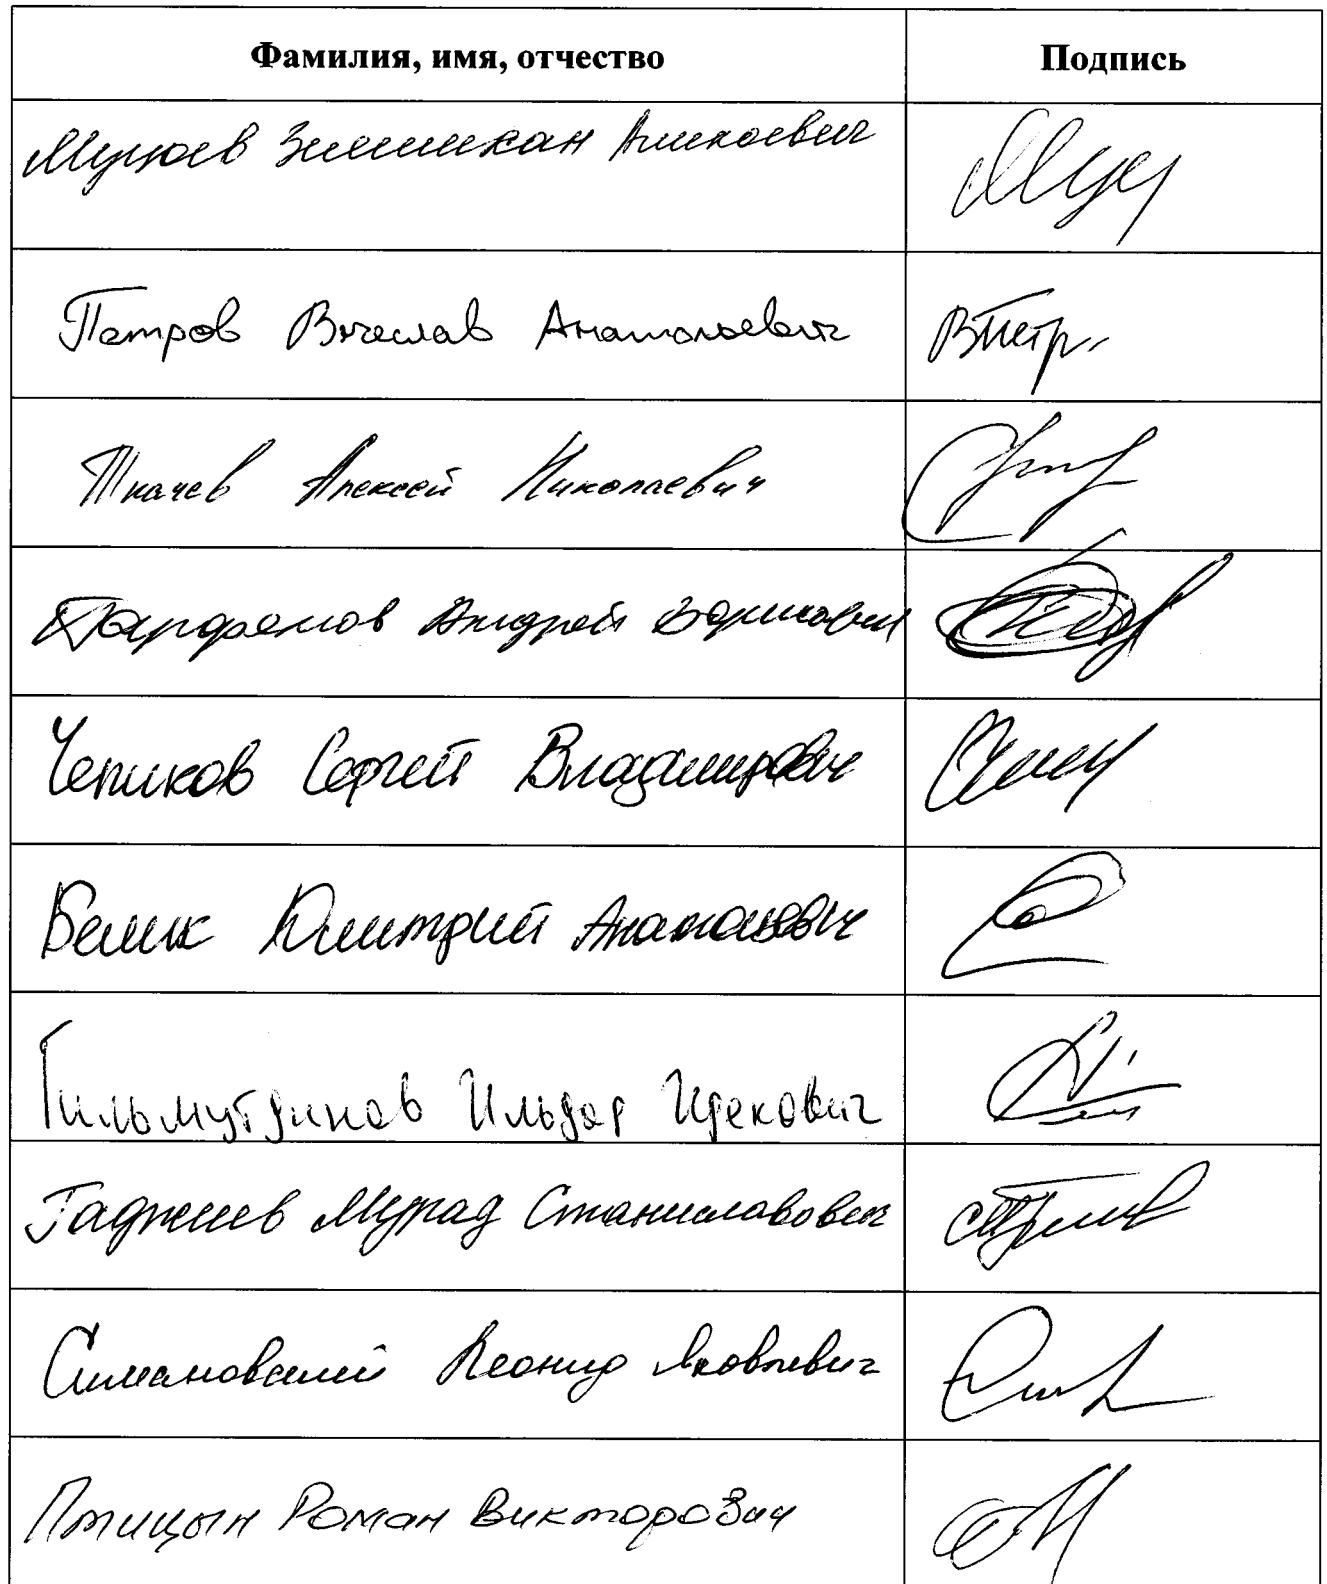 Фамилия, имя, отчество Подпись
Муцоев Зелимхан Аликоевич
Петров Вячеслав Анатольевич ВПетр
Ткачев Алексей Николаевич
Парфенов Андрей Борисович
Чепиков Сергей Владимирович
Белик Дмитрий Анатольевич
Гильмутдинов Ильдар Ирекович
Гаджиев Мурад Станиславович
Симановский Леонид Яковлевич
Птицын Роман Викторович